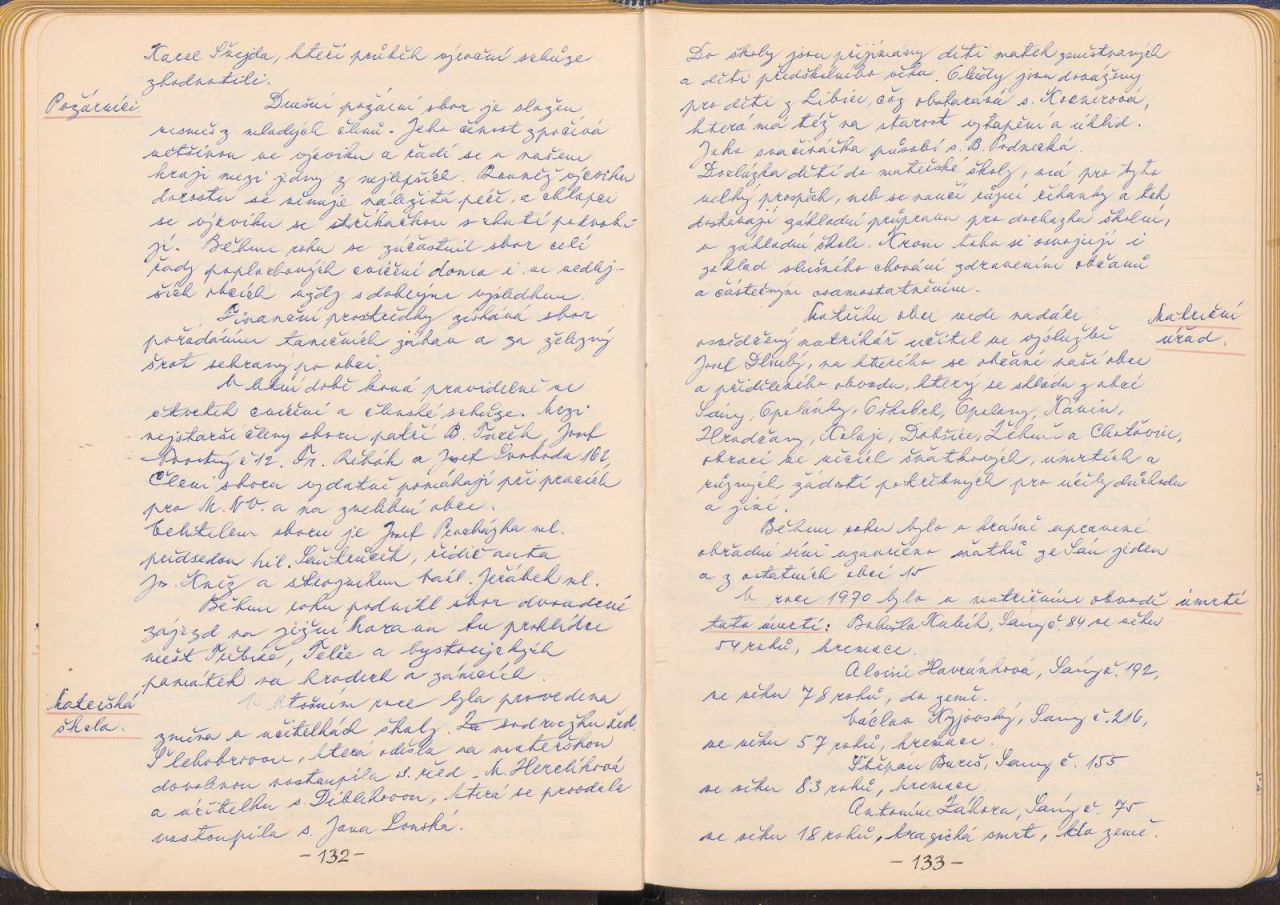 Karel Švejda, kteří průběh výroční schůze
zhodnotili.
Požárníci
Dnešní požární sbor je složen
vesměs z mladých členů. Jeho činnost zpočívá
většinou ve výcviku a řadí se v našem
kraji mezi jedny z nejlepších. Rovněž výcviku
dorostu se věnuje náležitá péče, a chlapci
se výcviku se stříkačkou s chutí podrobí
jí. Během roku se zúčastnil sbor celé
řady poplachových cvičení doma i ve vedlej-
ších obcích vždy s dobrým výsledkem.
Finanční prostředky získává sbor
pořádáním tanečních zábav a za železný
šrot sebraný po obci.
V letní době koná pravidelně ve
čtvrtek cvičení a členské schůze. Mezi
nejstarší členy sboru patří B. Josef
č 12. Fr. a Josef Svoboda 162,
Členi sboru vydatně pomáhají při pracích
pro M.N.V. a na zvelebení obce.
Velitelem sboru je Josef Procházka ml.
předsedou řidič auta
Jos. Kníž a strojníkem Jeřábek ml.
Během roku podnikl sbor dvoudenní
zájezd na jižní Moravu ku prohlídce
měst Třebíče, Telče a bystřických
památek na hradech a zámcích.
Mateřská
škola.
V letošním roce byla provedena
změna v učitelkách školy. Za soudružku řed.
Šlehobrovou, která odešla na mateřskou
dovolenou nastoupila s. řed. M. Herclíková
a učitelku s. Diblíkovou, která se provdala
nastoupila s. Jana Lonská.
-132-
Do školy jsou přijímány děti matek zaměstnaných
a děti předškolního věku. Obědy jsou dováženy
pro děti z Libice, což obstarává s. Kocnerová,
která má též na starost vytápění a úklid.
Jeho svačinářka působí s. B. Podnecká.
Docházka dětí do mateřské školy, má pro tyto
velký prospěch, neb se naučí různé říkanky a tak
dostávají základní průpravu pro docházku školní,
v základní škole. Krom toho si osvojují i
základ slušného chování zdravením občanů
a částečným osamostatněním.
Matriční
úřad.
Matriku obce vede nadále
osvědčený matrikář učitel ve výslužbě
Josef Dlouhý, na kterého se občané naší obce
a přiděleného obvodu, který se skládá z obcí
Sány, Opolánky, Oškobrh, Opolany, Kanín,
Hradčany, Kolaje, Dobšice, Žehuň a Choťovice,
obrací ve věcech sňatkových, úmrtích a
různých žádostí potřebných pro účely důchodu
a jiné.
Během roku bylo v krásně upravené
obřadní síni uzavřeno sňatků ze Sán jeden
a z ostatních obcí 15
úmrtí
V roce 1970 bylo v matričním obvodě
tato úmrtí: Bohuslav Kubík, Sány č 84 ve věku
54 roků, kremace.
Aloisie Havránková, Sány č. 192,
ve věku 78 roků, do země.
Václav Kyjovský, Sány č. 216,
ve věku 57 roků, kremace.
Štěpán Bureš, Sány č. 155
ve věku 83 roků, kremace
Antonín Záhora, Sány č. 75
ve věku 18 roků, tragická smrt, do země.
-133-